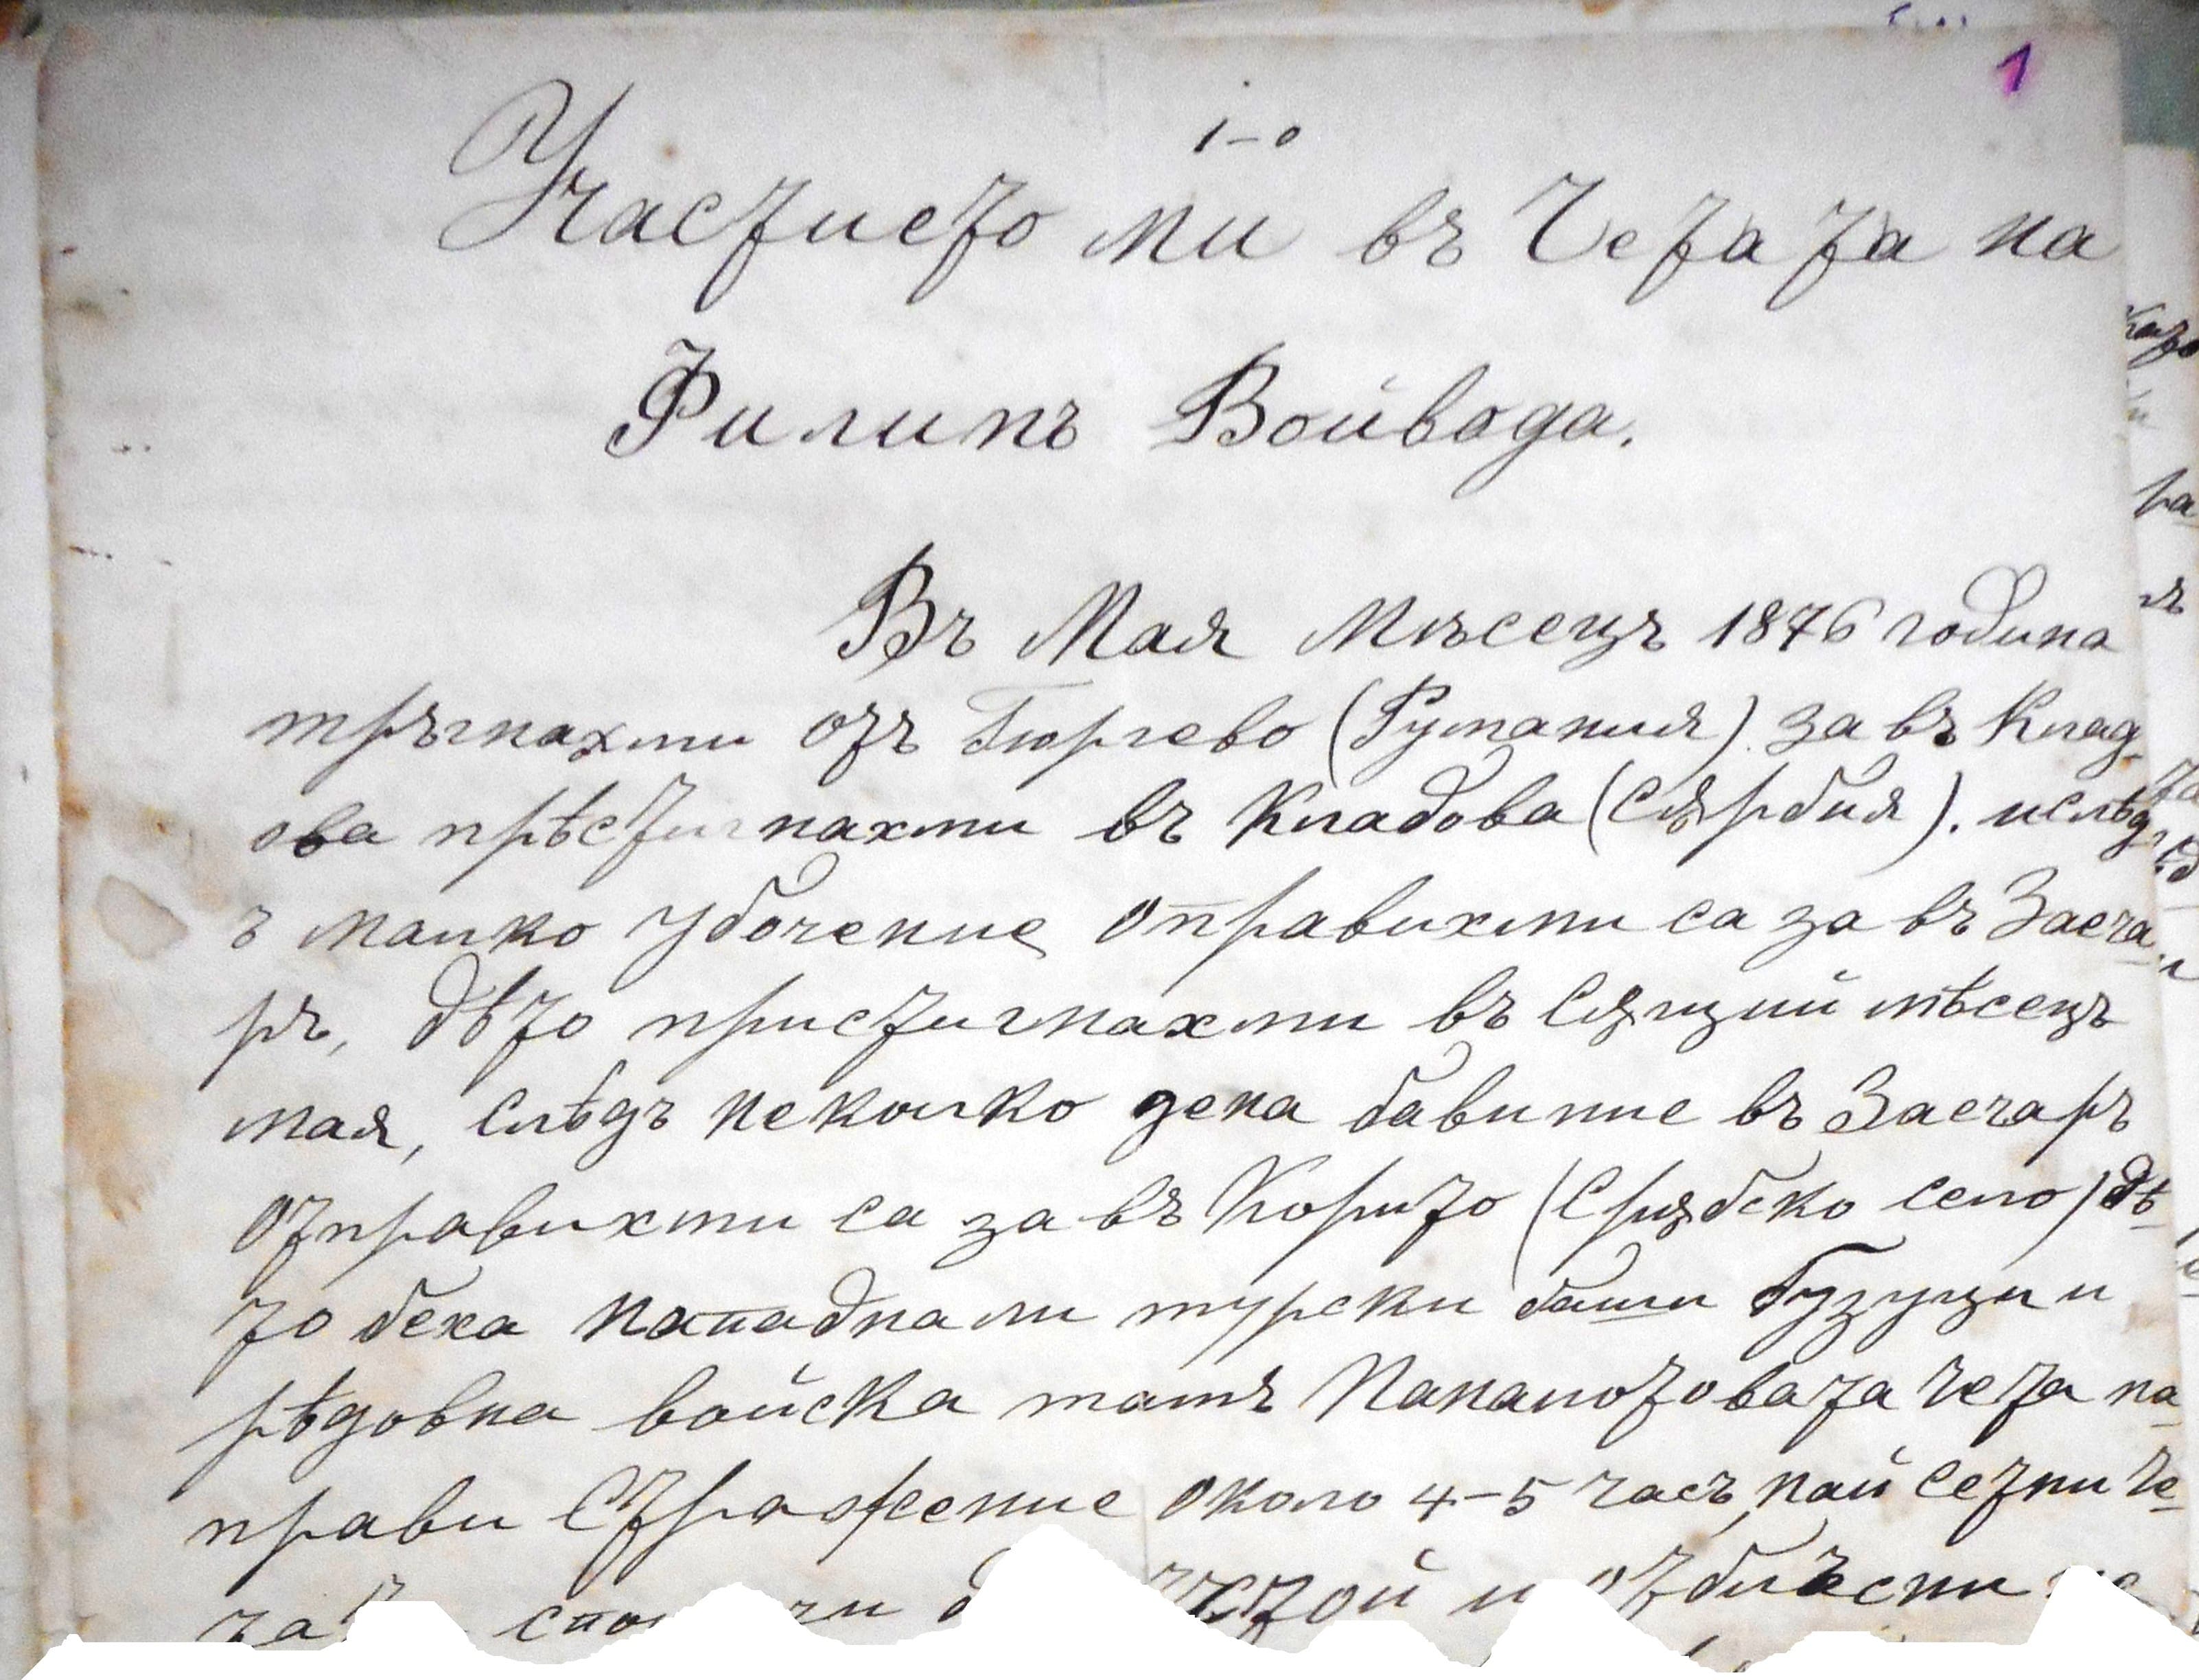 1
1-о
Участието ми въ Четата на
Филипъ Войвода.
Въ Май Мѣсецъ 1876 година
тръгнахми отъ Гюргево (Румания). За въ Клад-
ова прѣстигнахми въ Кладова (Сѫрбия). ислѣд-
ъ малко Убочение оправихми са за въ Заеча-
ръ, дѣто пристигнахми въ Сѫщий мѣсецъ
мая, Слѣдъ неколко дена бавиние въ Заечаръ
отправихми са за въ Корито (Срѫбско село) дѣ-
то беха нападнали турски баши Бузуци и
рѣдовна войска тамъ Панаиотовата чета на-
прави Стражение около 4-5 часъ, най Сетни че-